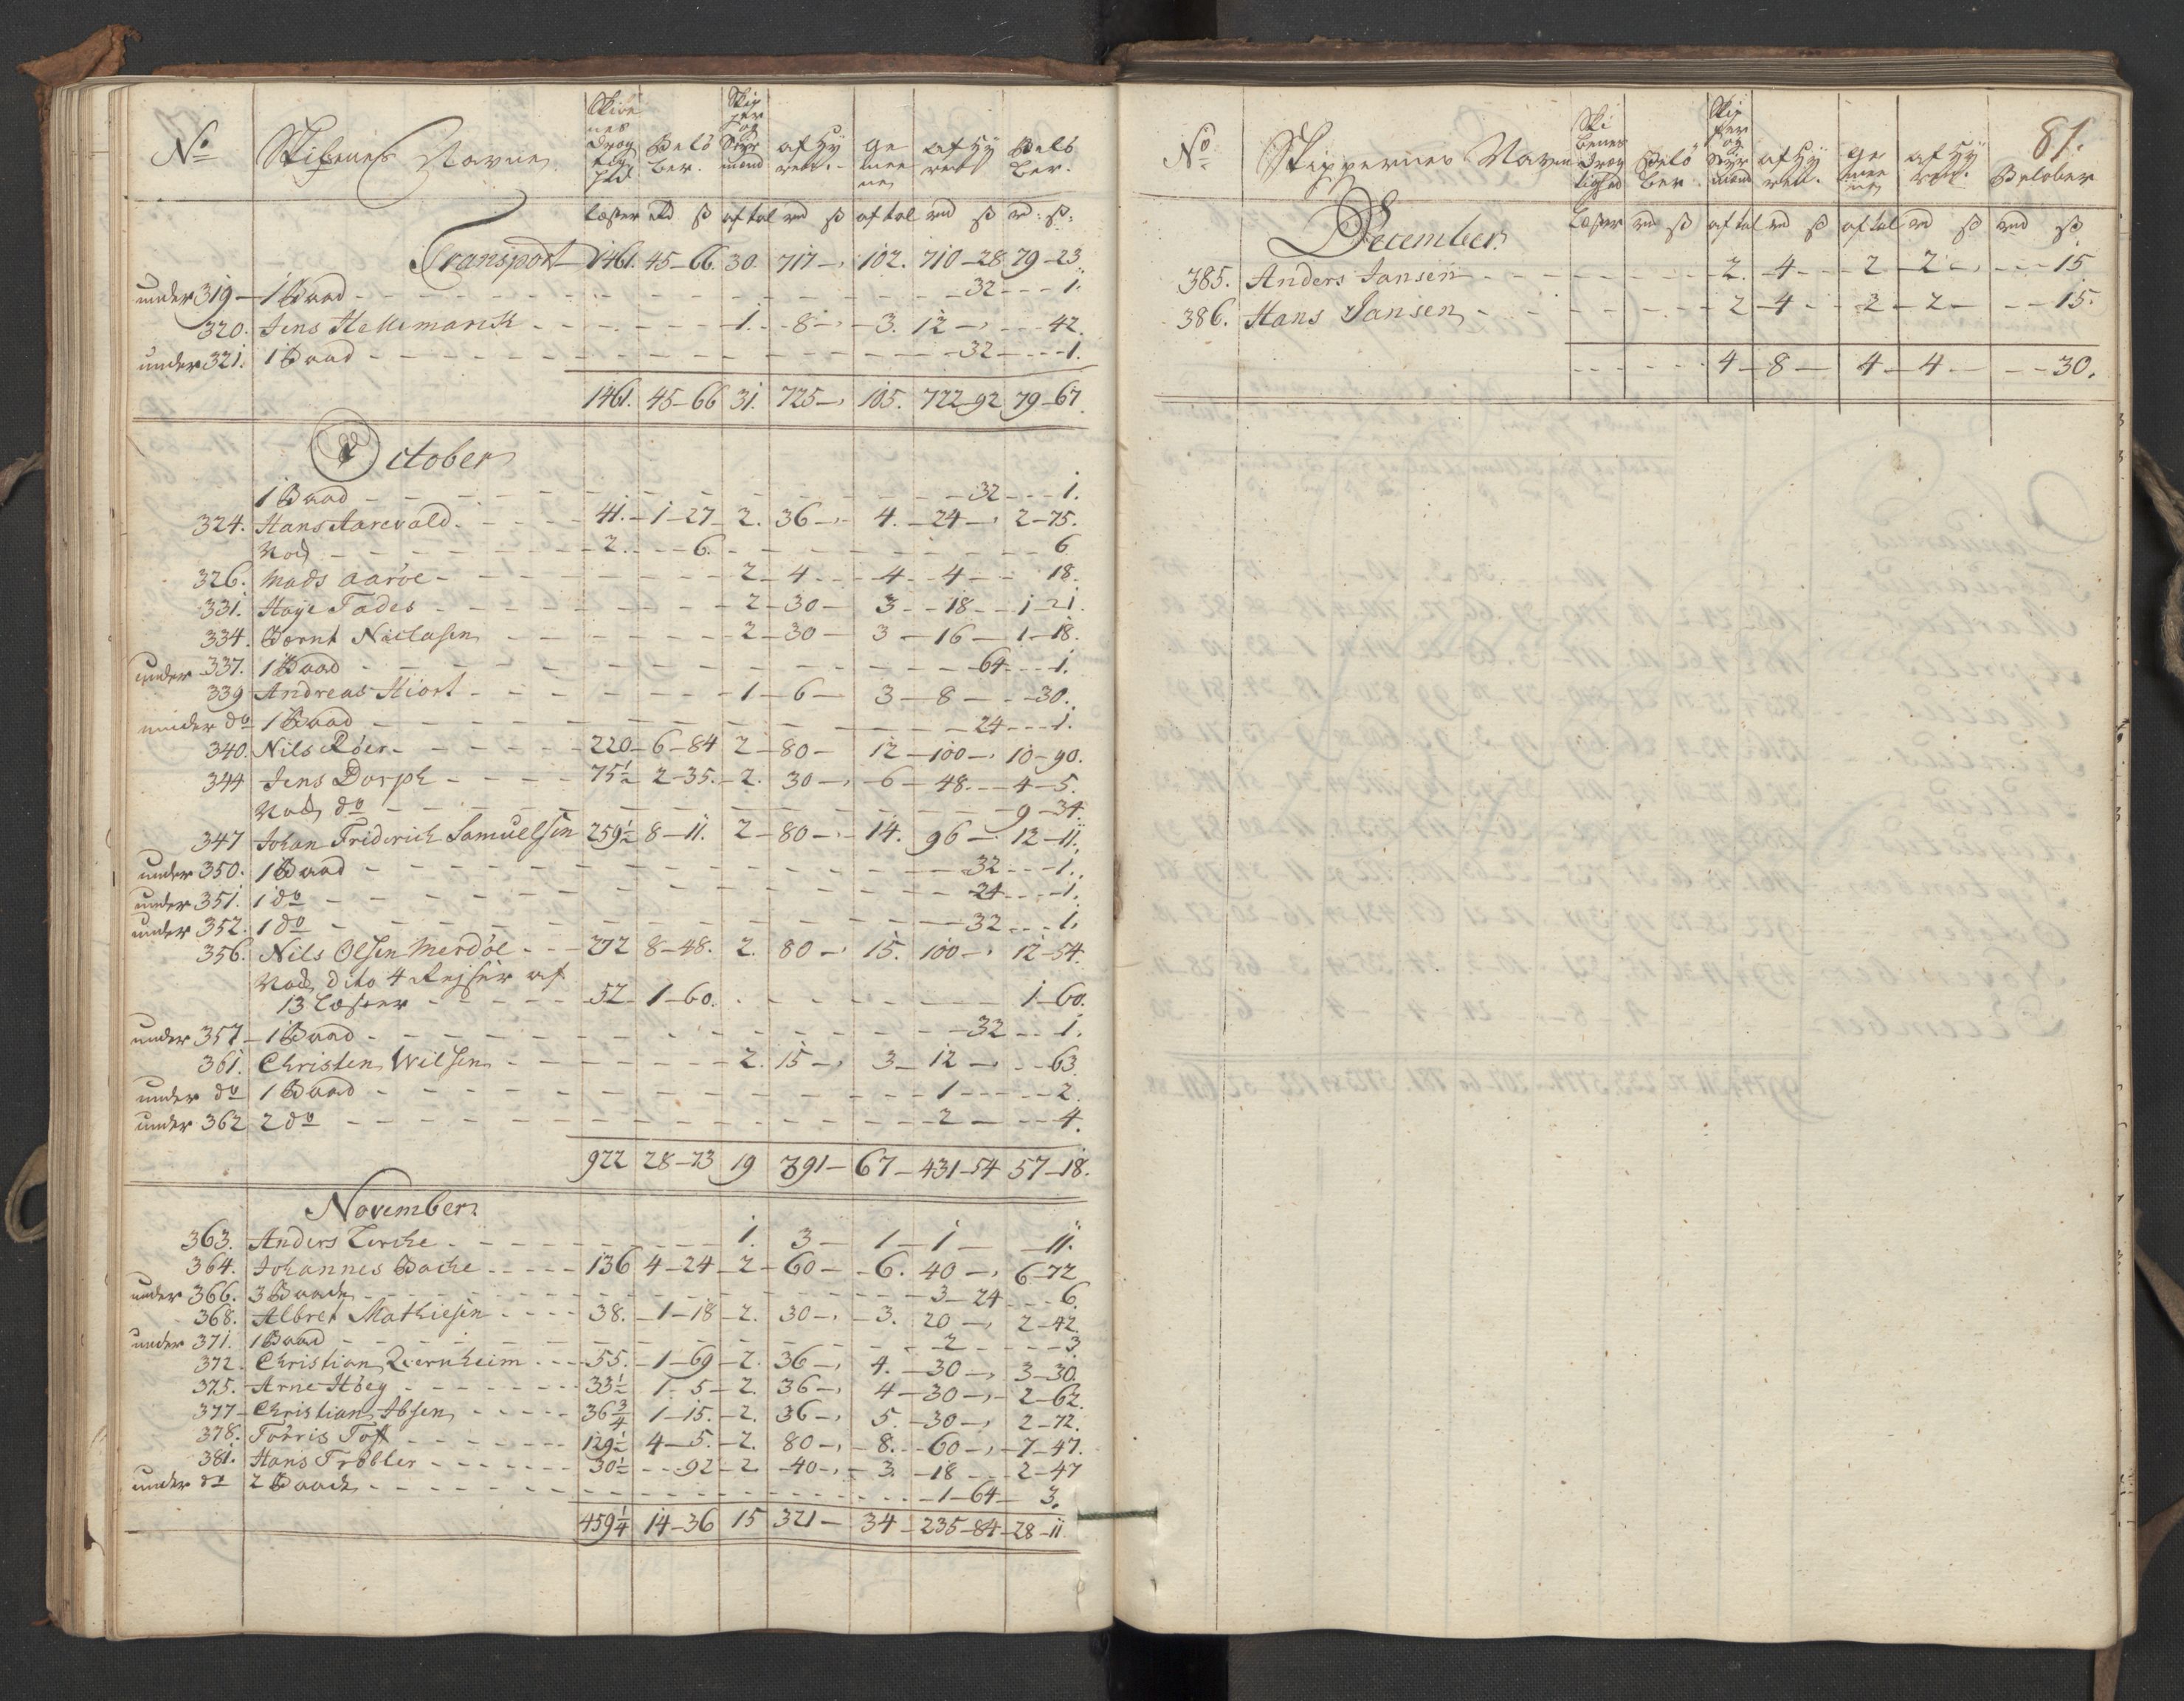 No Skibenes Navne Skibenes Drægtighed Beløber. Skipper og Styrmænd af Hyren. Gemeene af Hyren Beløber.
Læster rd ß aftal rd ß aftal rd ß rd: ß:
Transport 1461. 45-66. 30. 717-, 102. 710-28 79-23
under 319 - 1 Baad - 32 - 1.
320. Jens Hellemarck - 1. - 8 -, 3. 12 -, - 42.
under 321. 1 Baad - 32 - 1.
1461. 45-66 31. 725-, 105. 722-92 79-67.
October
1 Baad - 32 - 1.
324. Hans Aarevold. - 41. - 1-27 - 2. 36 -, 4. - 24 -, 2-75.
Nock - 2. - 6. - 6
326. Mads Aaröe - 2 - 4 - 4 - 4 - 18.
331. Haye Tades - 2 - 30 - 3 - 18 - 1-21.
334. Bernt Niclasen - 2 - 30 - 3 - 16 - 1-18.
under 337. 1 Baad - 64 - 1.
339 Andreas Hiort - 1 - 6 - 3 - 8 - 30.
under do 1 Baad - 24 - 1.
340. Nils Röer - 220 - 6-84 2 - 80 - 12 - 100 -, 10-90.
344 Jens Dorph - 75½ 2-35. - 2. 30 -, 6 - 48. - 4-5.
Nock do - 9-34.
347 Johan Friderich Samuelsen 259½ 8-11. 2 - 80 -, 14. 96 - 12-11.
under 350. 1 Baad - 32 - 1.
under 351. 1 do - 24 - 1.
under 352. 1 do - 32 - 1.
356. Nils Olsen Merdöe - 272 8-48. 2. 80 -, 15. 100 -, 12-54.
Nock Dito 4 Rejser af
13 Læster - 52 - 1-60. - 1-60.
under 357 - 1 Baad - 32 - 1.
361. Christen Wilsen - 2. 15 -, 3 - 12 -, - 63.
under do 1 Baad - 1 - 2.
under 362 2 do - 2 - 4.
922 28-73 19 391 - 67 - 431-54 57-18.
November
363. Anders Lerche - 1. 3 - 1 - 1 - 11.
364. Johannes Bache - 136 4-24 - 2 - 60 - 6. 40 -, 6-72
under 366. 3 Baade - 3-24 - 6.
368. Albret Mathiesen - 38. - 1-18 - 2. 30 -, 3. 20 -, 2-42.
under 371. 1 Baad - 2 - 3.
372. Christian Qvernheim - 55. - 1-69 - 2. 36 -, 4. - 30 -, 3-30.
375. Arne Höeg - 33½ 1-5 - 2. 36 -, 4 - 30 -, 2-62.
377 - Christian Ibsen - 36¾ 1-15. - 2. 36 -, 5. - 30 -, 2-72.
378. Törris Toft - 129½ 4-5. - 2. 80 -, 8. - 60 -, 7-47.
381. Hans Tröbler - 30½ - 92 - 2. 40 -, 3. - 18 - 2-47
under do 2 Baade - 1-64 - 3.
459¼ 14-36 15 321 - 34 - 235-84 - 28-11
81.
No Skippernes Navne Skibenes Drægtighed Beløber. Skipper og Styrmænd af Hyren. Gemeene af Hyren. Beløber
Læster rd ß aftal rd ß aftal rd ß rd ß
December
385. Anders Jansen - 2. - 4 - 2 - 2 -, - 15
386. Hans Jansen - 2 - 4 - 2 - 2 - 15.
4 - 8 - 4 - 4 - 30.